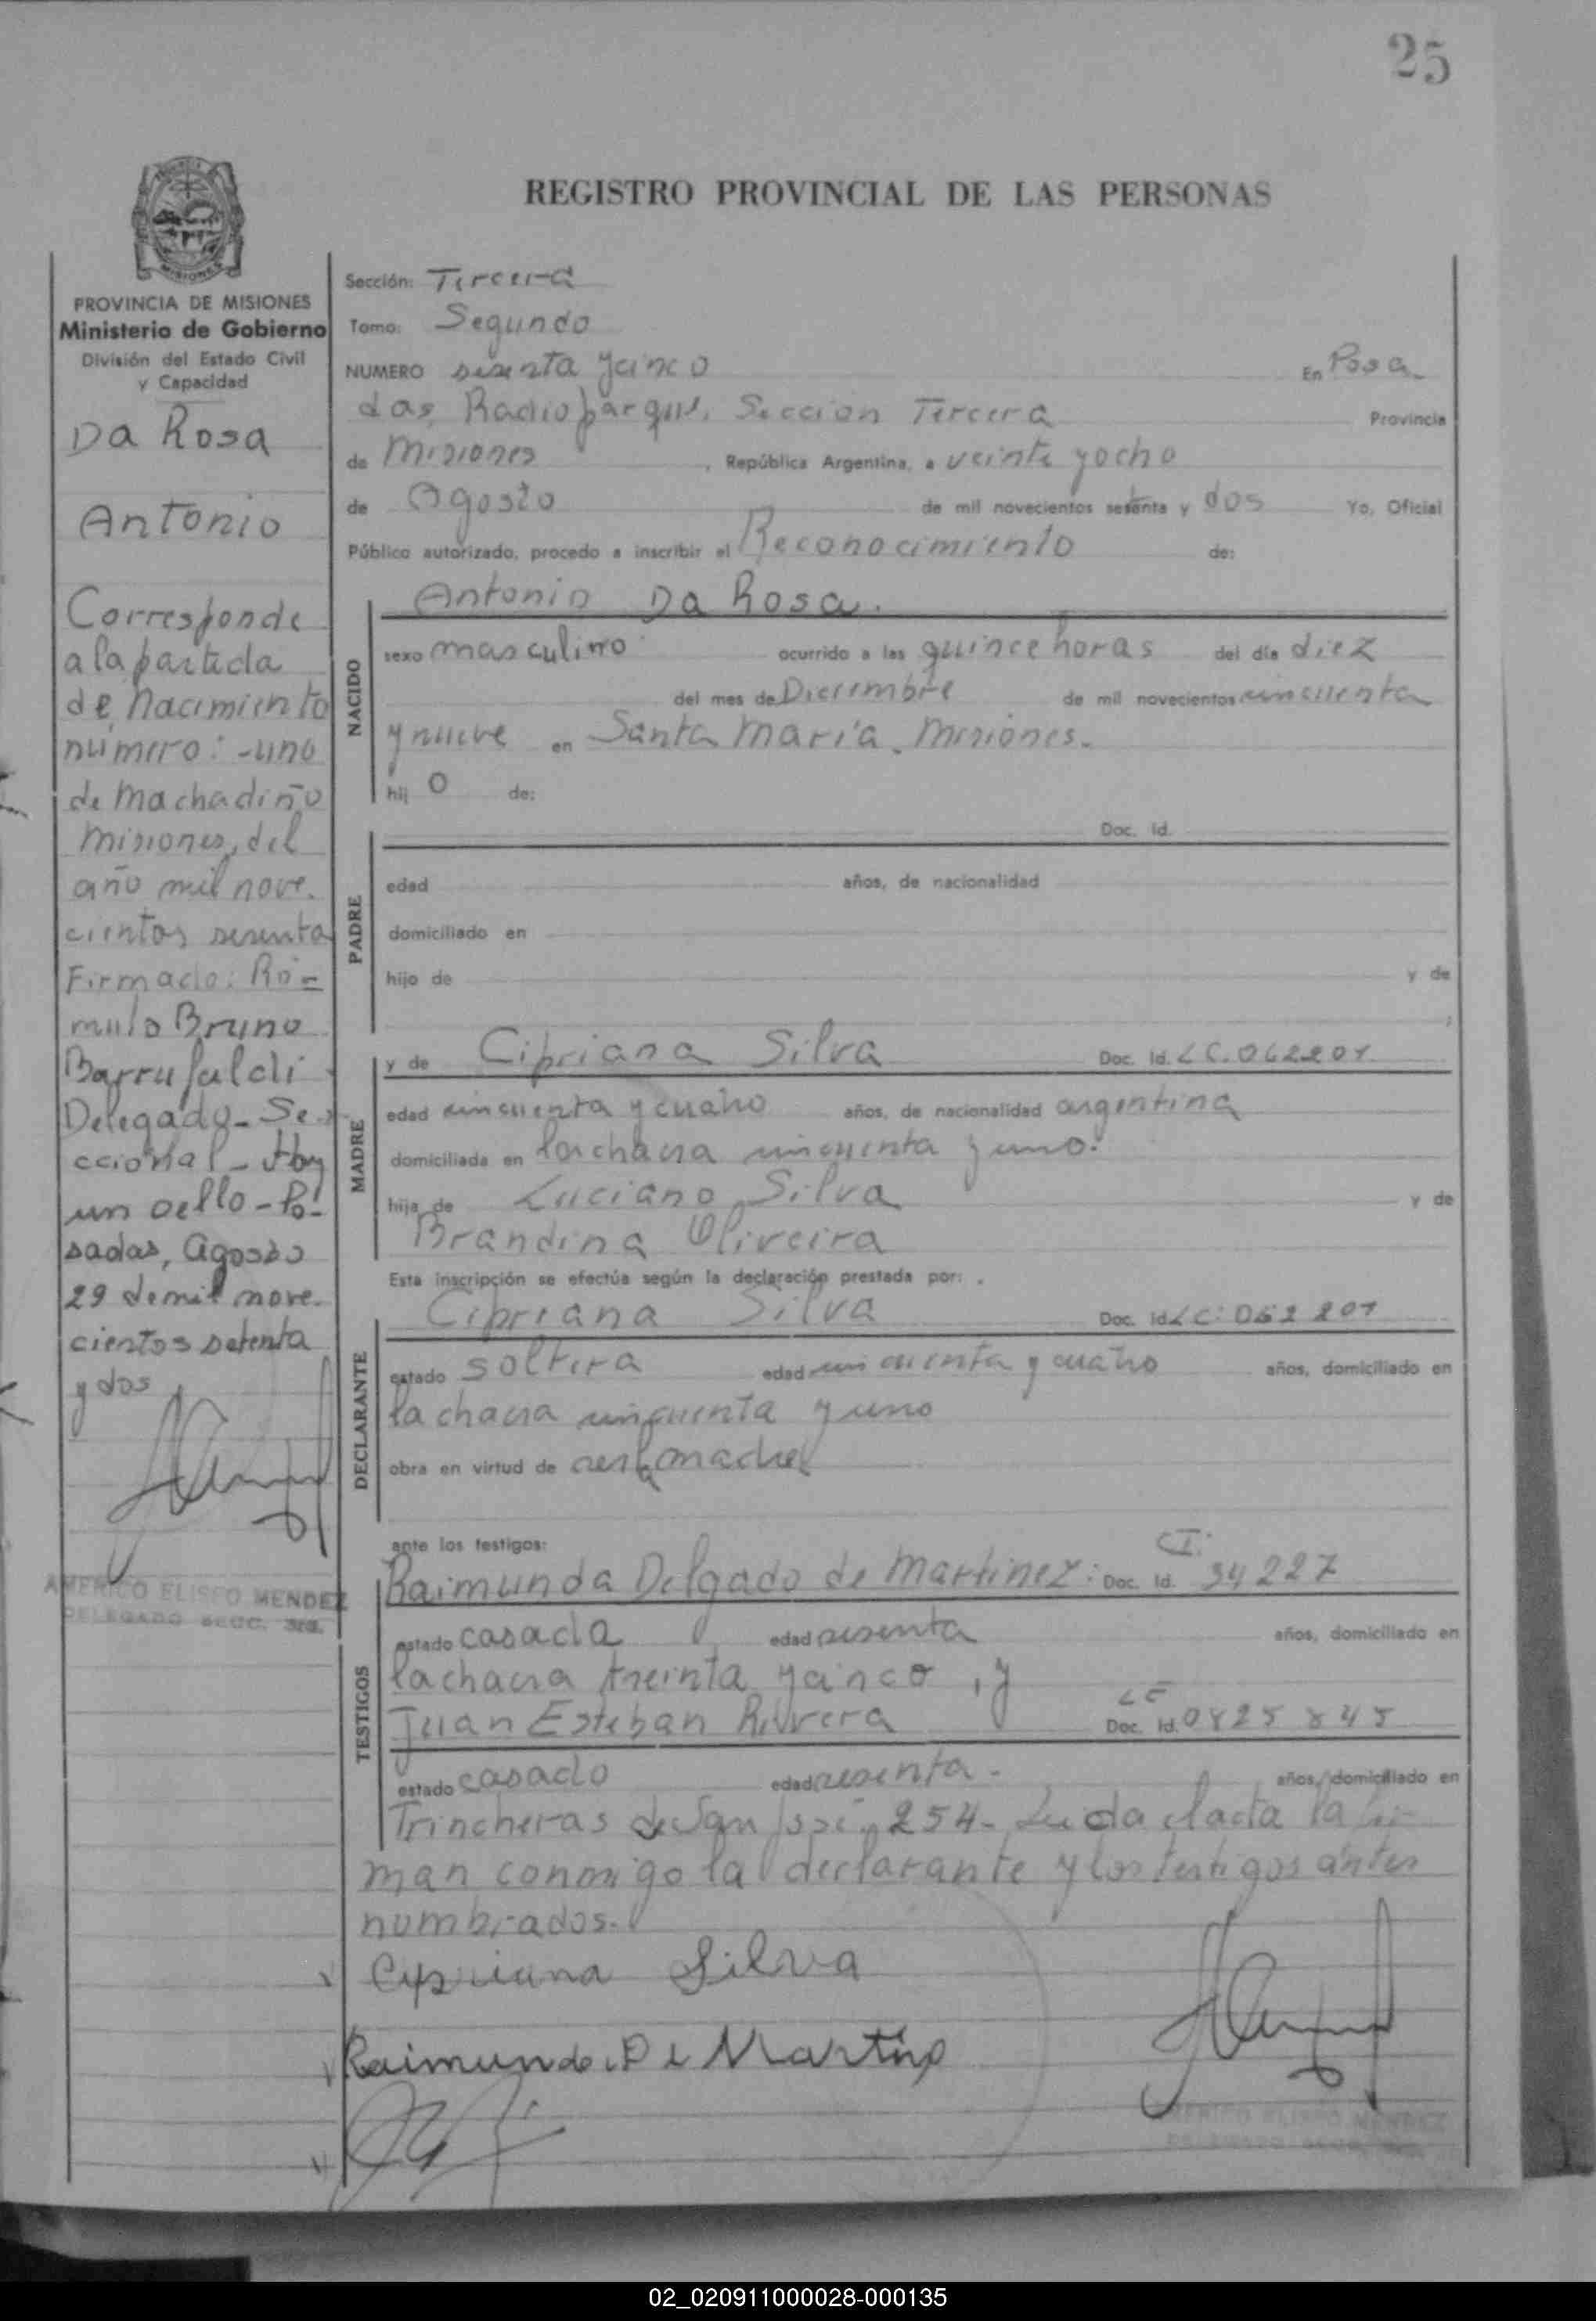 25
REGISTRO PROVINCIAL DE LAS PERSONAS
PROVINCIA DE MISIONES
Ministerio de Gobierno
División del Estado Civil
y Capacidad
Da Rosa
Antonio
Corresponde
a la partida
de Nacimiento
número: - uno
de Machadiño
Misiones, del
año mil nove.
cientos sesenta
Firmado: Ró=
mulo Bruno
Barrufaldi
Delegado - Se-
ccional - Hay
un sello - Po-
sadas, Agosto
29 de mil nove.
cientos setenta
y dos
AMERICO ELISEO MENDEZ
DELEGADO SECC. 3ra.
Sección: Tercera
Tomo: Segundo
NUMERO sesenta y cinco En Posa
das, Radioparque, Sección Tercera Provincia
de Misiones, República Argentina, a veinte y ocho
de Agosto de mil novecientos setenta y dos Yo, Oficial
Público autorizado, procedo a inscribir el Reconocimiento de:
NACIDO
Antonio Da Rosa.
sexo masculino ocurrido a las quince horas del día diez
del mes de Diciembre de mil novecientos cincuenta
y nueve en Santa María. Misiones.
hij o de:
PADRE
Doc. Id.
edad años, de nacionalidad
domiciliado en
hijo de y de
MADRE
y de Cipriana Silva Doc. Id. LC.
edad cincuenta y cuatro años, de nacionalidad argentina
domiciliada en la chacra cincuenta y uno.
hija de Luciano Silva y de
Brandina Oliveira
Esta inscripción se efectúa según la declaración prestada por:
DECLARANTE
Cipriana Silva Doc. Id LC:
estado soltera edad cincuenta y cuatro años, domiciliado en
la chacra cincuenta y uno
obra en virtud de ser la madre
ante los testigos:
TESTIGOS
CI.
Raimunda Delgado de Martinez: Doc. Id. 34227
estado casada edad sesenta años, domiciliado en
la chacra treinta y cinco, y
LE
Juan Esteban Rivera Doc. Id.
estado casado edad sesenta. años, domiciliado en
Trincheras de San José, 254. Leida el acta la fir
man conmigo la declarante y los testigos antes
nombrados.
Cypriana Silva
Raimunda D de Martinez
AMERICO ELISEO MENDEZ
DELEGADO SECC.
02_020911000028-000135